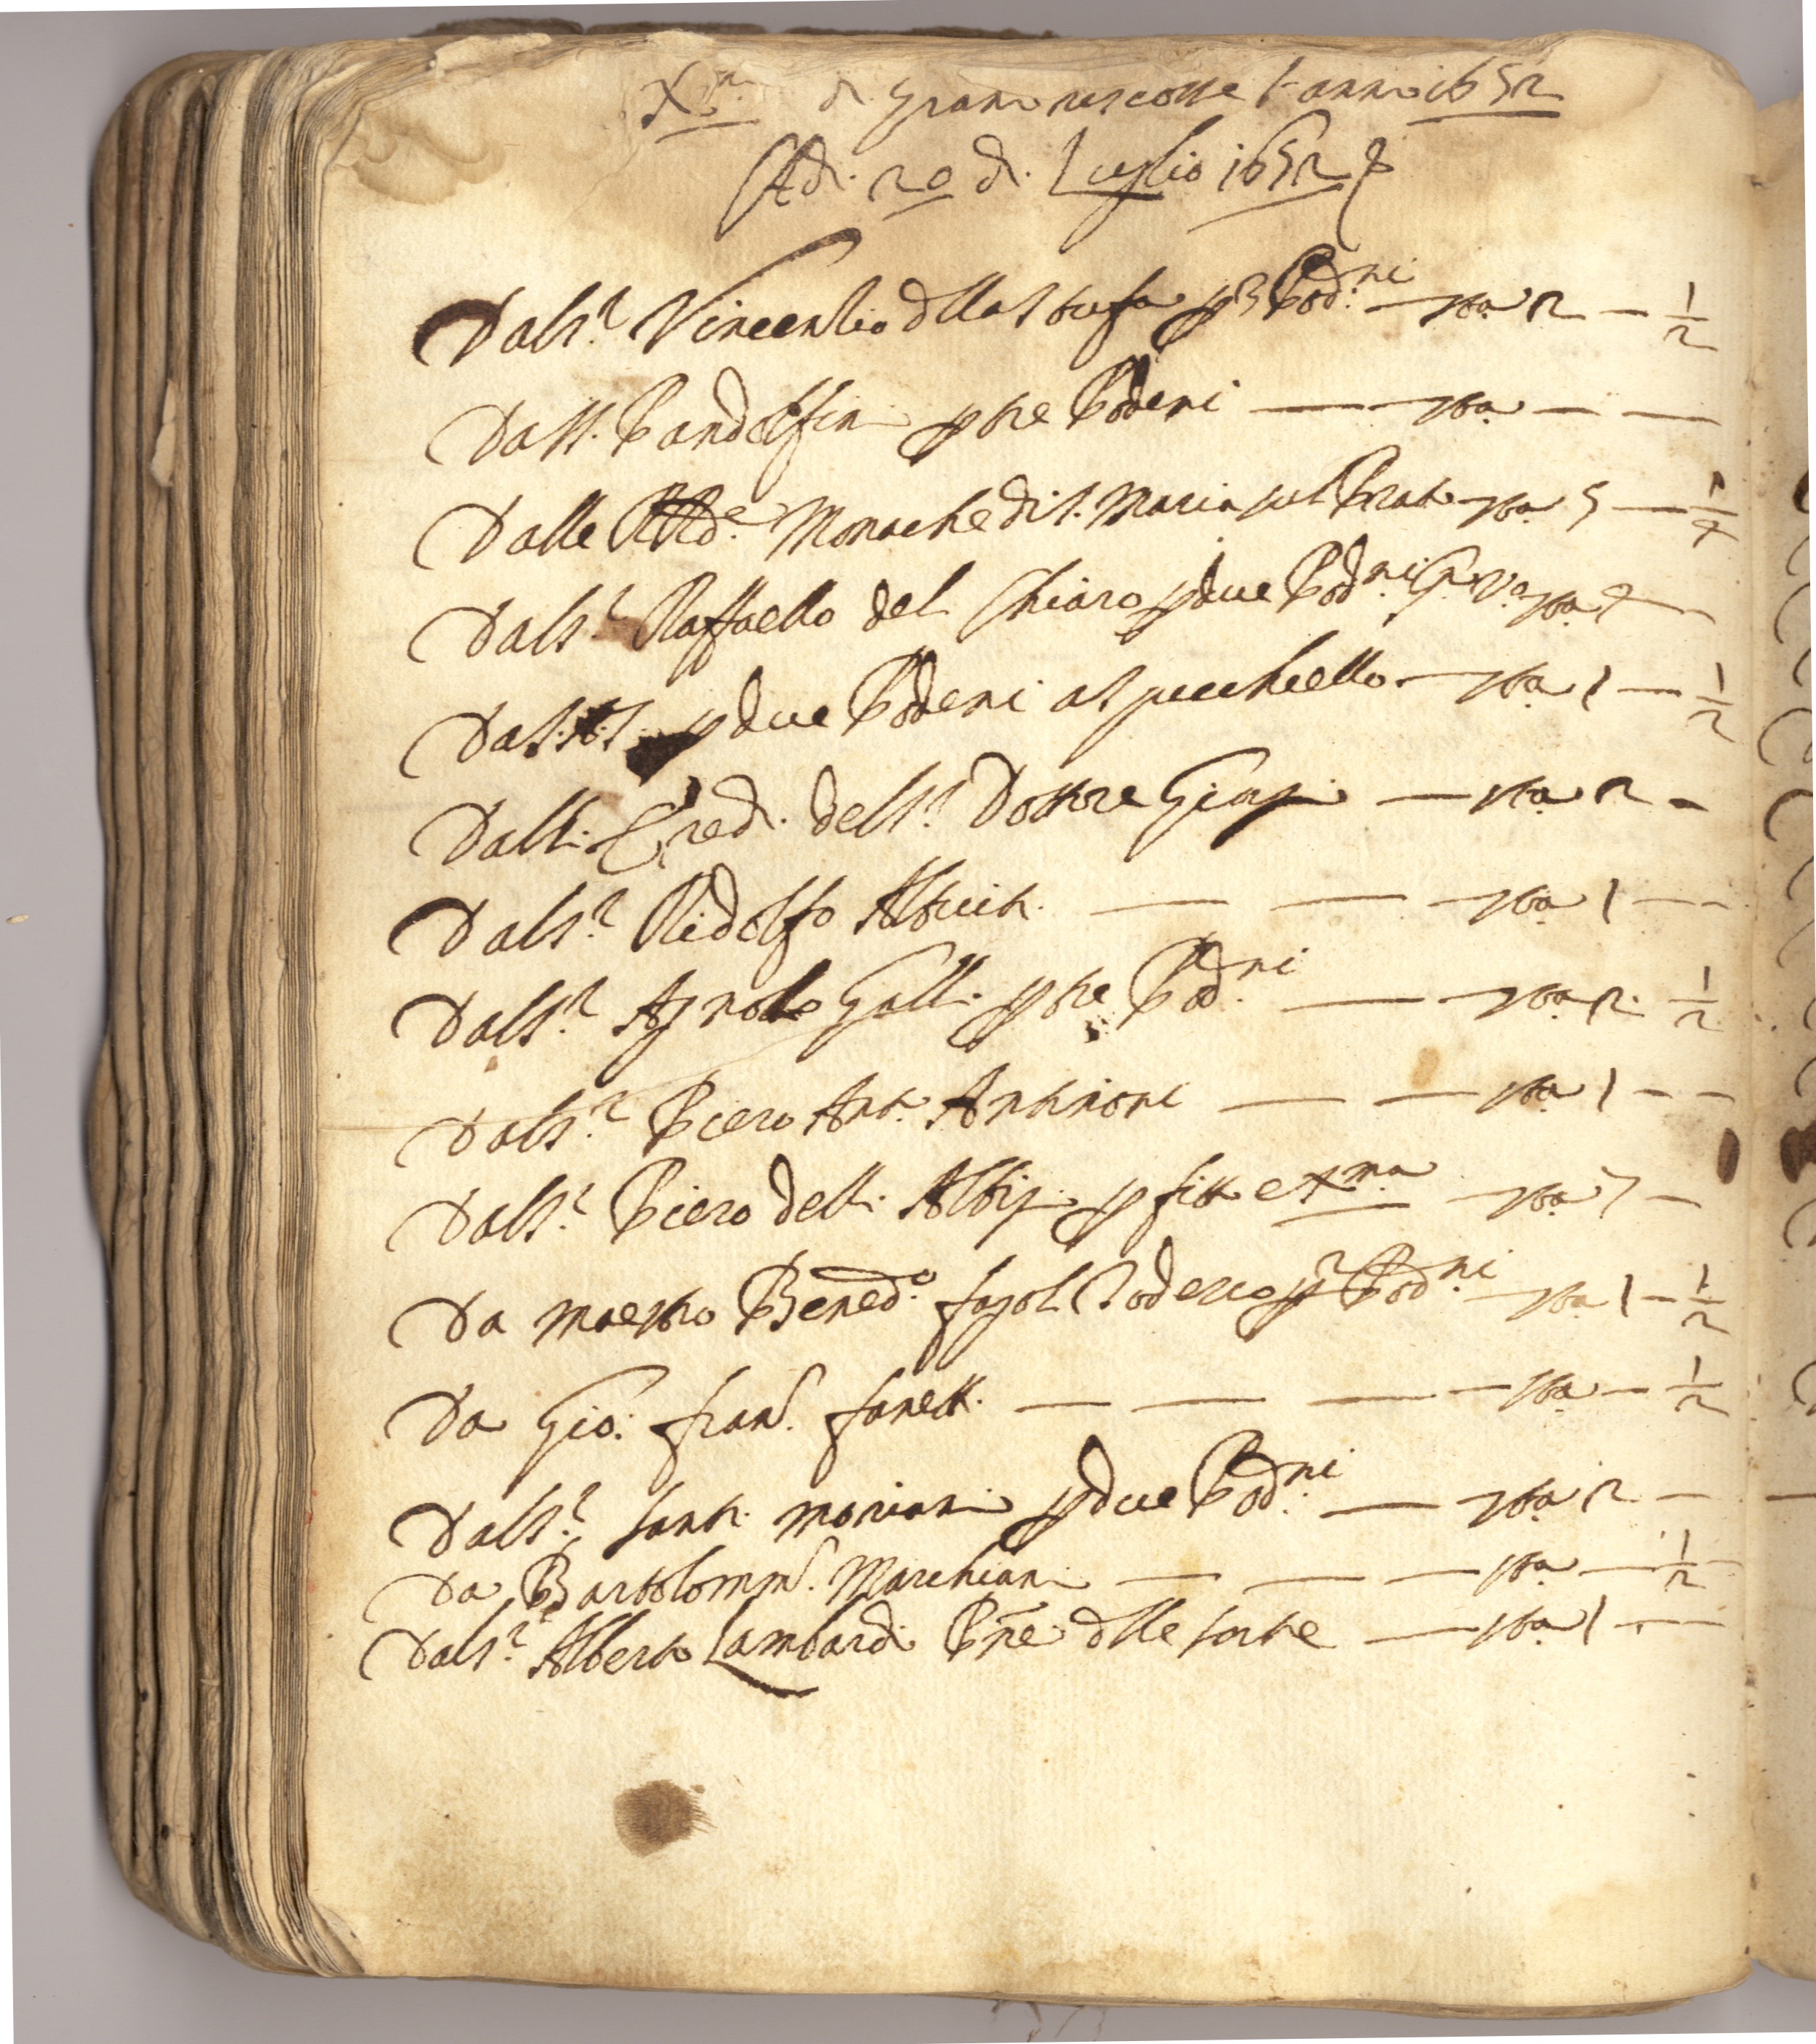 X.ma di Grani riscosse l'anno 1652
Adi. 20 di. Luglio 1652
Dal S.r Vincentio della Stufa p 3 Pod.ni — sta 2 — 1/2
Da SS. Pandolfini p tre Poderi — sta — —
Dalle RRde Monache di S. Maria sul Prato sta 5 — 1/4
Dal S.r Raffaello del Chiaro p due Pod.ni sta —
Da p due Poderi al — sta 1 — 1/2
Dalli Eredi. dell S.r Dottore — sta 2 –
Dal S.r Ridolfo — — sta 1 – –
Dal S.r Agnolo Galli p tre Pod.ni — sta 2. 1/2
Dal S.r Piero Ant. Antinori — — sta 1 – –
Dal S.r Piero delli Albizi p fitto e X.ma sta –
Da maestro Bened.o p 2 Pod.ni — sta 1 – 1/2
Da Gio: Fran. — — — sta – 1/2
Dal S.r Santi Mariani p due Pod.ni — sta 2 –
Da Bartolomm. Marchiani — — — sta — 1/2
Dal S.r Alberto Lambardi Pre delle — sta 1 – –